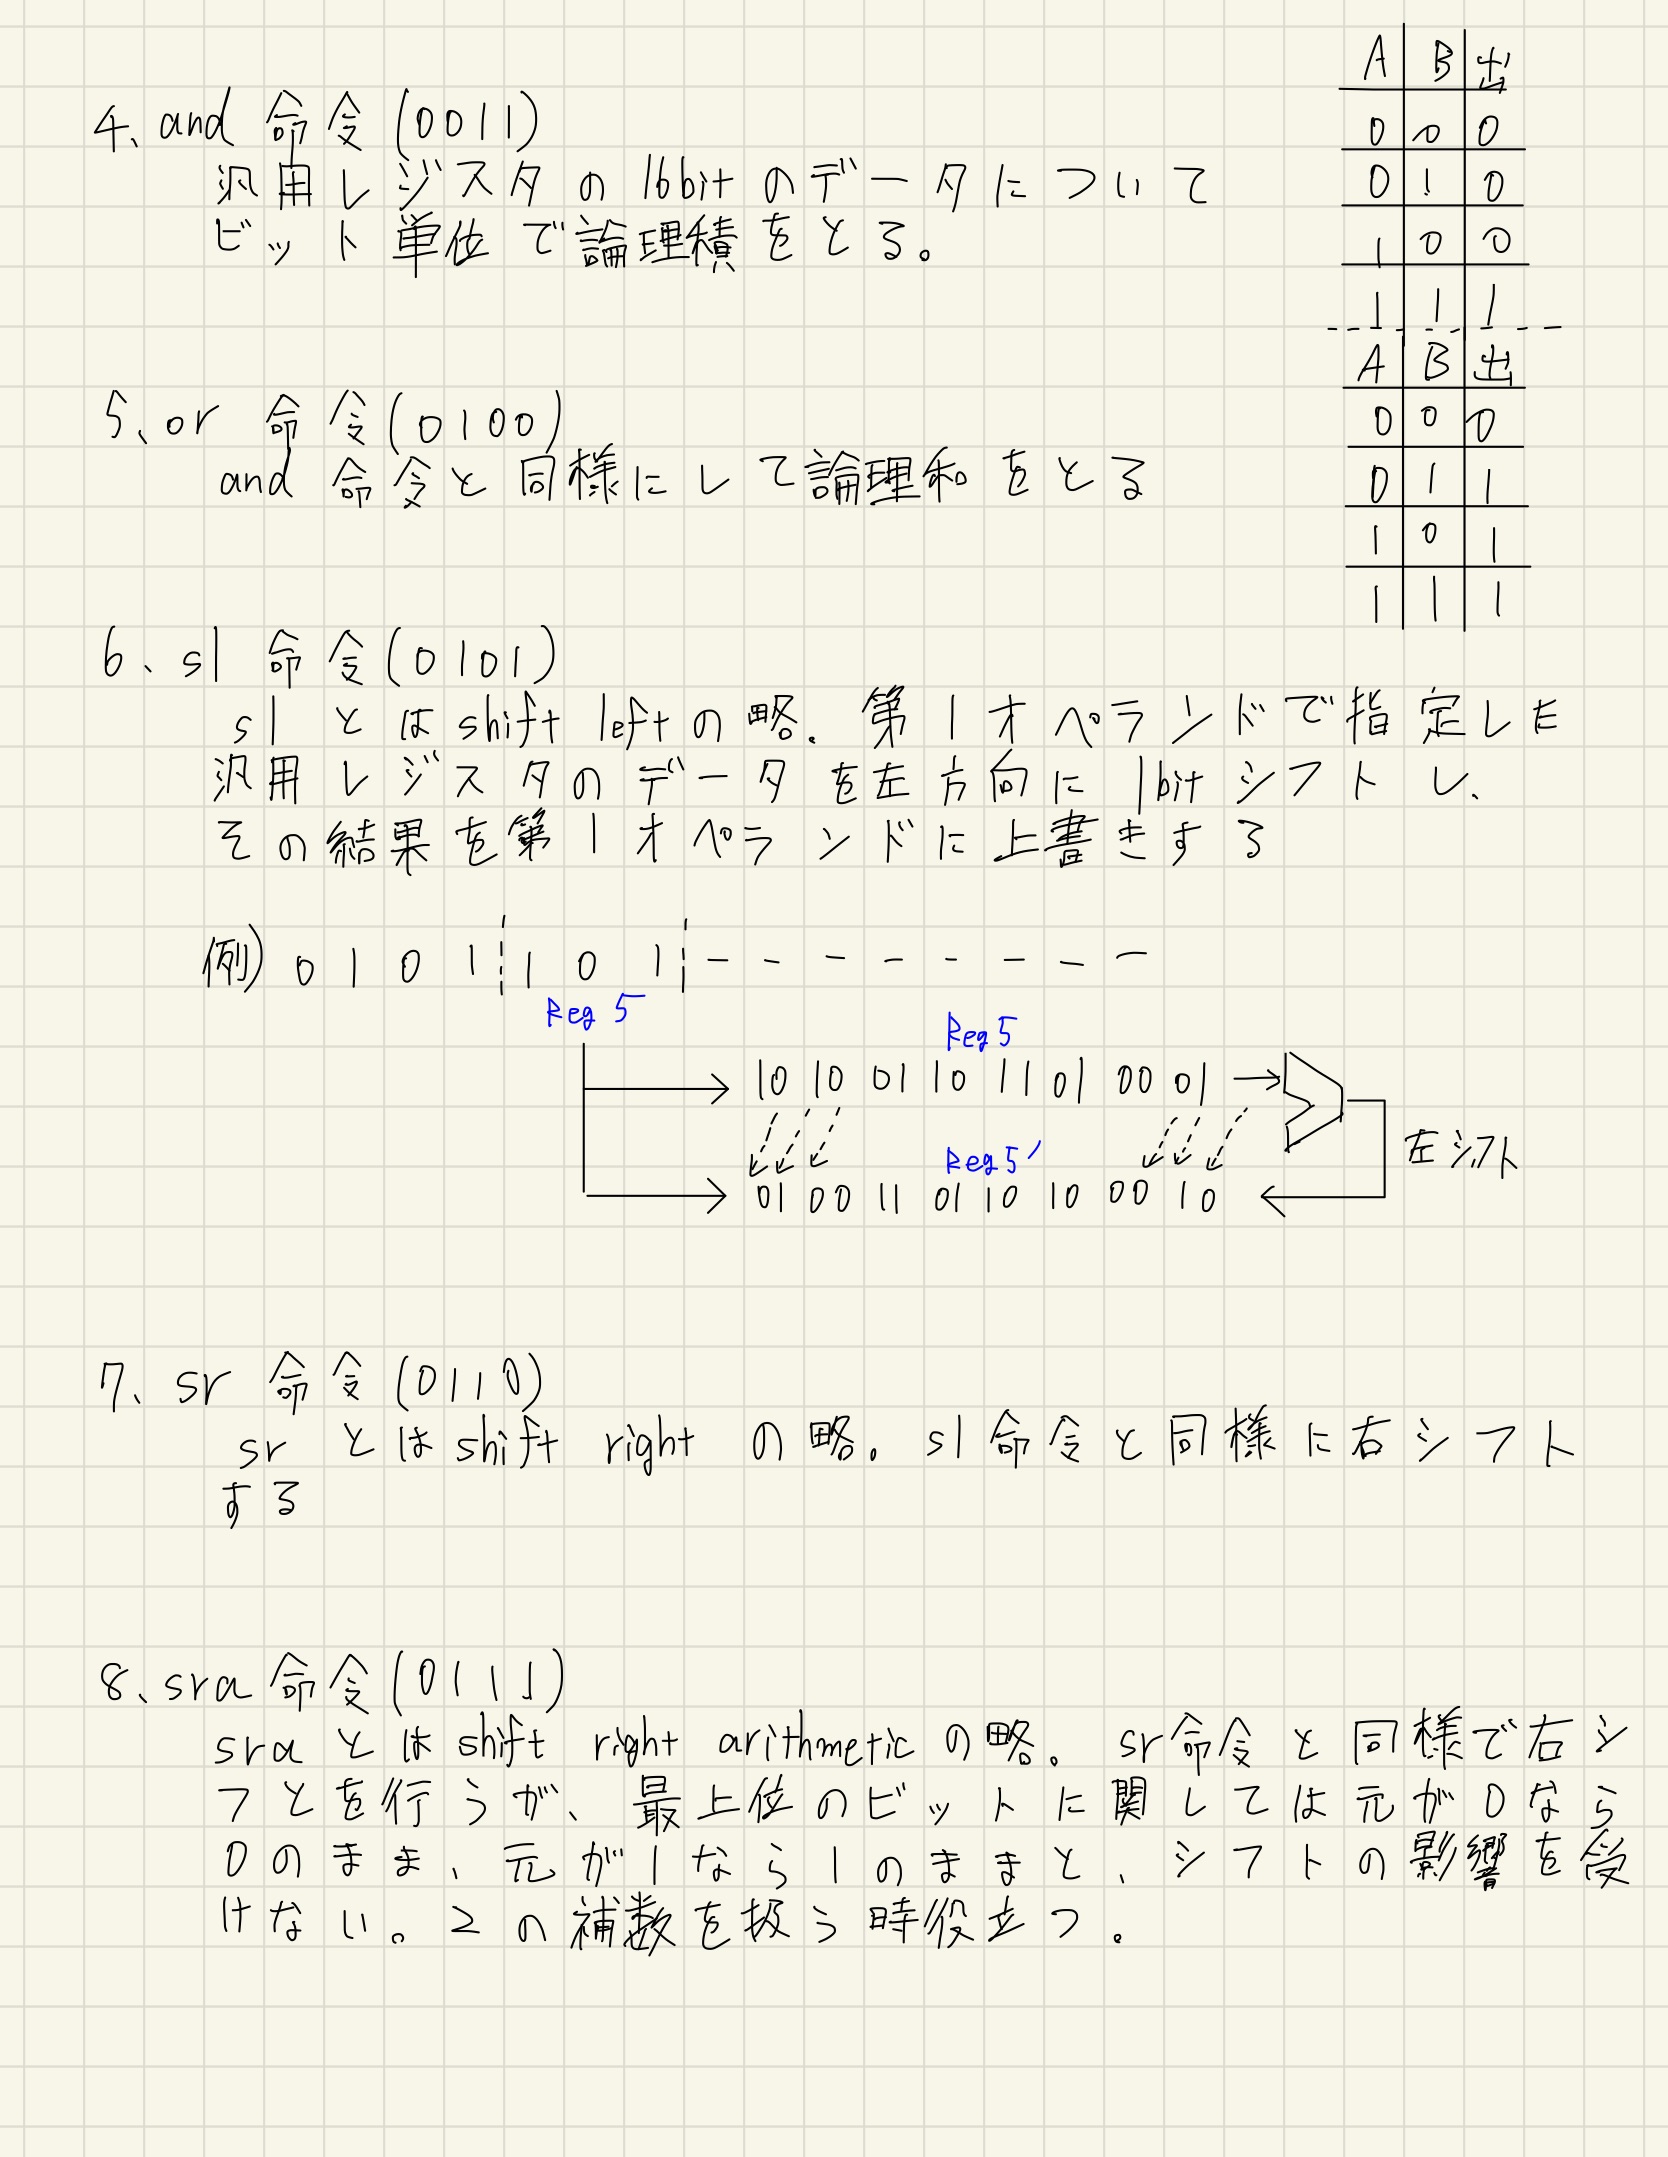 4、and 命令(0011)
汎用レジスタの16bitのデータについて
ビット単位で論理積をとる。
A B 出
0 0 0
0 1 0
1 0 0
1 1 1
A B 出
0 0 0
0 1 1
1 0 1
1 1 1
5、or 命令(0100)
and 命令と同様にして論理和をとる
6、sl 命令(0101)
sl とは shift left の略。第1オペランドで指定した
汎用レジスタのデータを左方向に1bitシフトし、
その結果を第1オペランドに上書きする
例) 0 1 0 1 1 0 1 - - - - - - - -
Reg 5
Reg 5
10 10 01 10 11 01 00 01
Reg 5'
01 00 11 01 10 10 00 10
左シフト
7、sr 命令(0110)
sr とは shift right の略。sl 命令と同様に右シフト
する
8、sra 命令(0111)
sra とは shift right arithmetic の略。sr命令と同様で右シ
フとを行うが、最上位のビットに関しては元が0なら
0のまま、元が1なら1のままと、シフトの影響を受
けない。2の補数を扱う時役立つ。